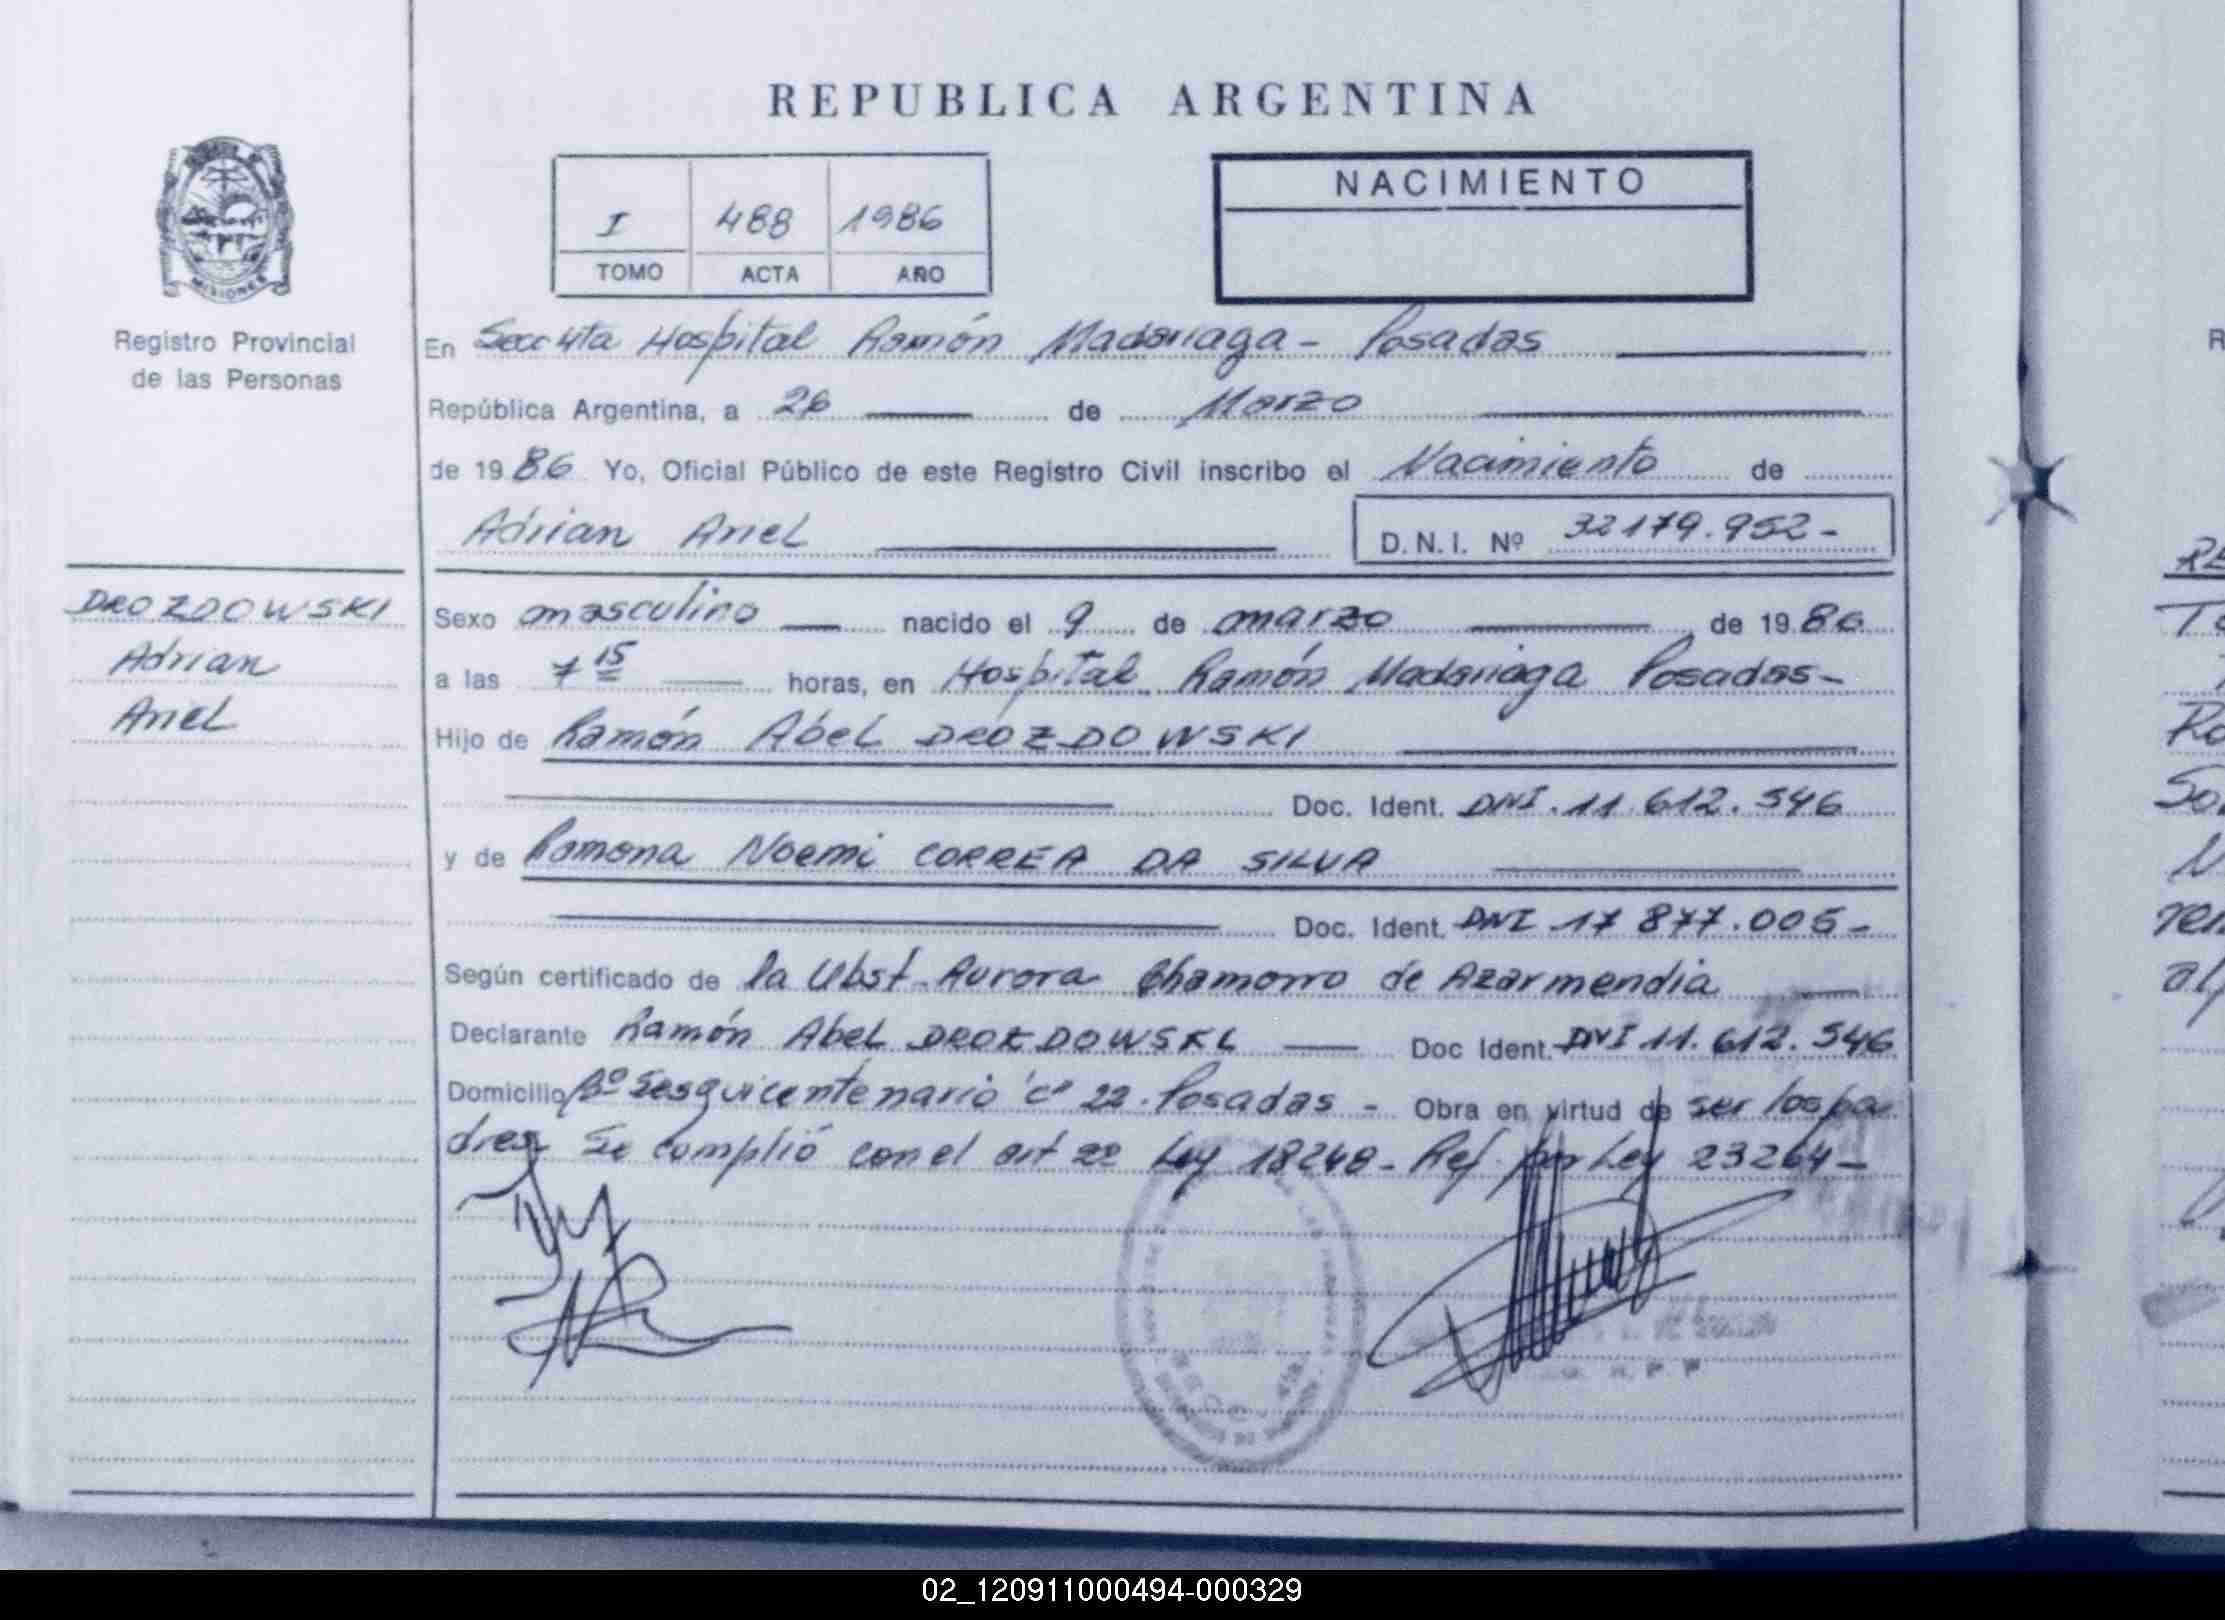 REPUBLICA ARGENTINA
I 488 1986
TOMO ACTA AÑO
NACIMIENTO
MISIONES
Registro Provincial
de las Personas
En Secc 4ta Hospital Ramón Madariaga - Posadas
República Argentina, a 26 de Marzo
de 1986 Yo, Oficial Público de este Registro Civil inscribo el Nacimiento de
Adrian Ariel D.N.I. Nº 32179.952-
DROZDOWSKI
Adrian
Ariel
Sexo masculino nacido el 9 de marzo de 1986
a las 7 15 horas, en Hospital Ramón Madariaga Posadas-
Hijo de Ramón Abel DROZDOWSKI
Doc. Ident. DNI. 11.612.546
y de Ramona Noemi CORREA DA SILVA
Doc. Ident. DNI 17 877.005-
Según certificado de la Obst. Aurora Chamorro de Azarmendia
Declarante Ramón Abel DROZDOWSKI Doc Ident. DNI 11.612.546
Domicilio Bº Sesquicentenario cº 22. Posadas - Obra en virtud de ser los pa
dres Se complió con el art 2º Ley 18248- Ref. por Ley 23264-
R. P. P
02_120911000494-000329